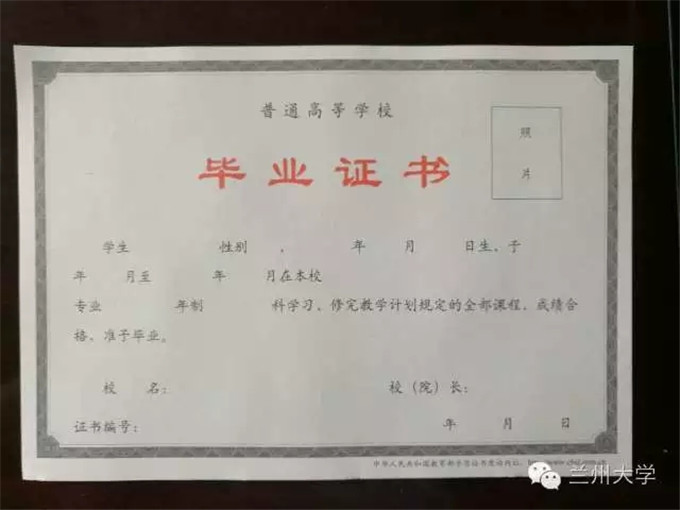 普通高等学校
毕业证书
照
片
学生 性别 ， 年 月 日生，于
年 月至 年 月在本校
专业 年制 科学习，修完教学计划规定的全部课程，成绩合
格，准予毕业。
校 名： 校（院）长：
证书编号： 年 月 日
中华人民共和国教育部学历证书查询网址：
兰州大学